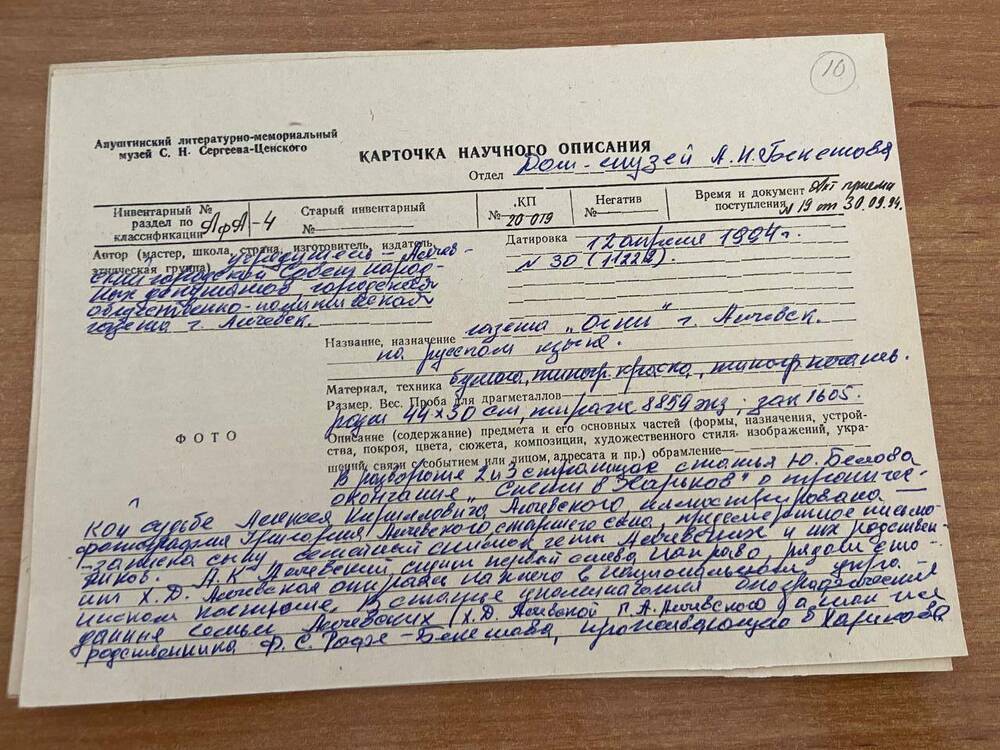 10
Алуштинский литературно-мемориальный
музей С. Н. Сергеева-Ценского
КАРТОЧКА НАУЧНОГО ОПИСАНИЯ
Отдел Дом-музей А.Н.Бекетова
Инвентарный №
раздел по
классификации АфА-4
Старый инвентарный
№
КП
№ 20 019
Негатив
№
Время и документ Акт приема
поступления №19 от 30.09.94.
Автор (мастер, школа, страна, изготовитель, издатель,
этническая группа) учредитель – Алчев-
ский городской Совет народ-
ных депутатов городской
общественно-политической
газеты г. Алчевск.
Датировка 12 апреля 1994г.
№ 30 (11222).
Название, назначение газета „Огни" г. Алчевск.
на русском языке.
Материал, техника бумага, типогр. краска, типогр. печать.
Размер. Вес. Проба для драгметаллов
разм 44×30 см, тираж 8859 экз; зак 1605.
ФОТО
Описание (содержание) предмета и его основных частей (формы, назначения, устрой-
ства, покроя, цвета, сюжета, композиции, художественного стиля. изображений, укра-
шений, связи с событием или лицом, адресата и пр.) обрамление
В развороте 2 и 3 страницах статья Ю. Белова
окончание „Спеши в Харьков" о трагичес-
кой судьбе Алексея Кирилловича Алчевского, иллюстрирована —
фотография Григория Алчевского старшего сына, предсмертное письмо-
-записка сыну, семейный снимок четы Алчевских и их родствен-
ников. А.К. Алчевский, сидит первый слева направо, рядом сто-
ит Х.Д. Алчевская опираясь на плечо в национальном укра-
инском костюме. В статье упоминаются биографические
данные семьи Алчевских (Х.Д. Алчевской Г.А. Алчевского) а так же
родственника Ф.С. Рофе-Бекетова, проживающего в Харькове